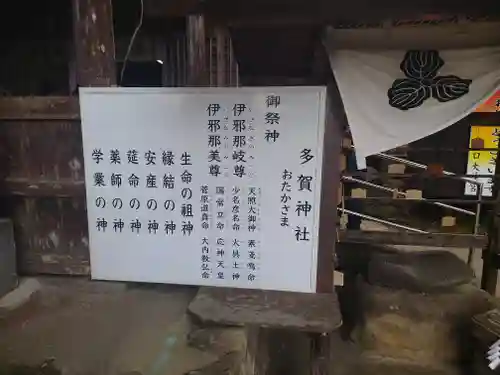 多賀神社
おたかさま
御祭神
伊邪那岐尊
伊邪那美尊
天照大御神
素戔嗚命
少名彦名命
火具土神
国常立命
応神天皇
菅原道真命
大内教弘命
生命の祖神
縁結の神
安産の神
延命の神
薬師の神
学業の神